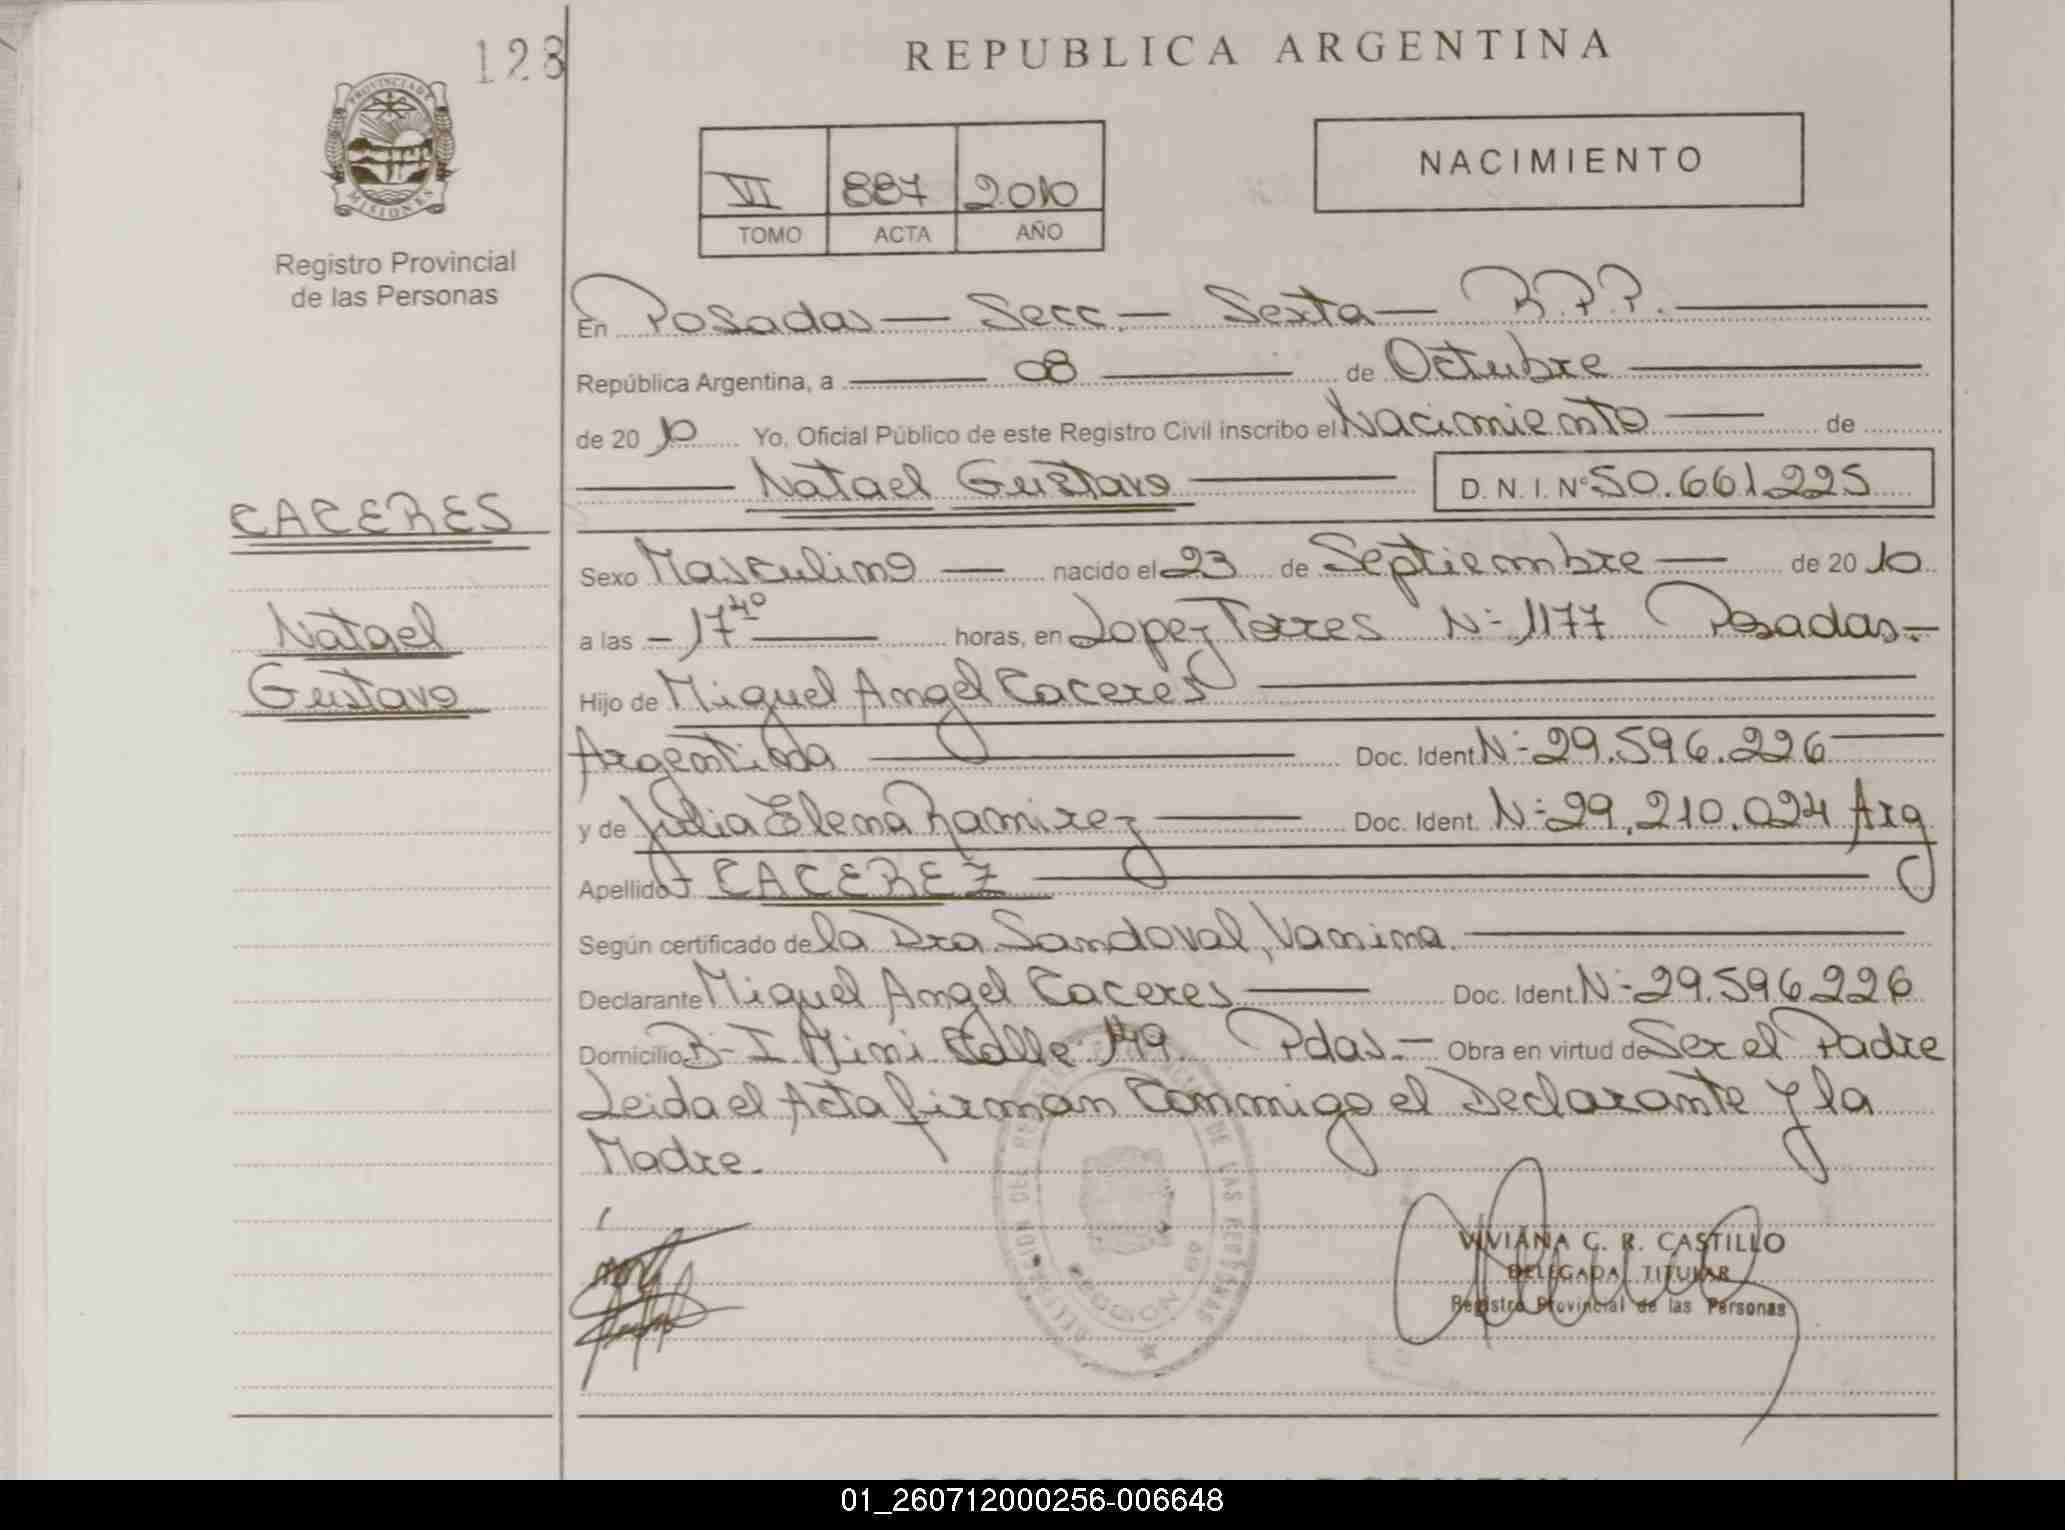 128
REPUBLICA ARGENTINA
PROVINCIA DE
MISIONES
Registro Provincial
de las Personas
VI 887 2010
TOMO ACTA AÑO
NACIMIENTO
En Posadas — Secc. — Sexta — R.P.P.
República Argentina, a 08 de Octubre
de 20 10 Yo, Oficial Público de este Registro Civil inscribo el Nacimiento de
Natael Gustavo D. N. I. Nº 50.661.225
CACERES
Natael
Gustavo
Sexo Masculino — nacido el 23 de Septiembre — de 20 10
a las - 17⁴⁰ horas, en Lopez Torres N:- 1177 Posadas.-
Hijo de Miguel Angel Caceres
Doc. Ident. N:- 29.596.226
y de Julia Elena Ramirez Doc. Ident. N:- 29.210.024 Arg
Apellido CACEREZ
Según certificado de la Dra. Sandoval, Vanina.
Declarante Miguel Angel Caceres Doc. Ident. N:- 29.596.226
Domicilio B- I. Mini Calle 149 Pdas.- Obra en virtud de Ser el Padre
Leida el Acta firman Conmigo el Declarante y la
Madre.-
DE LAS PERSONAS
VIVIANA G. R. CASTILLO
DELEGADA TITULAR
Registro Provincial de las Personas
01_260712000256-006648